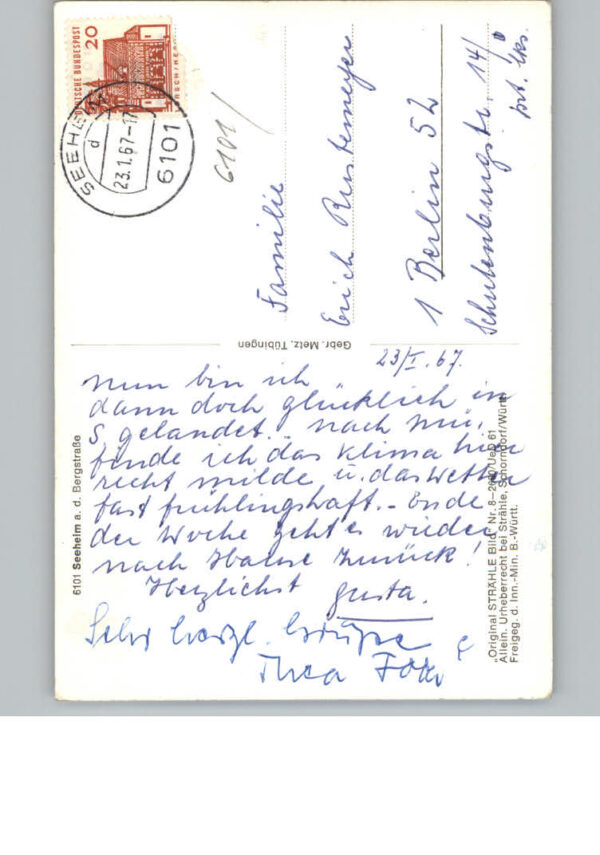 DEUTSCHE BUNDESPOST
20
LORSCH/HESSEN
SEEHEIM
d
23.1.67-17
6101
6101/
Familie
Erich Rustemeyer
1 Berlin 52
Schulenburgstr. 14/
Gebr. Metz, Tübingen
23/I.67.
Nun bin ich
dann doch glücklich in
S. gelandet.. nach
finde ich das Klima hier
recht milde u. das Wetter
fast frühlingshaft. - Ende
der Woche geht es wieder
nach Hause zurück!
Herzlichst Gusta.
Sehr herzl. Grüsse
Thea
6101 Seeheim a. d. Bergstraße
"Original STRÄHLE Bild" Nr. 61
Allein. Urheberrecht bei Strähle, Schorndorf/Württ.
Freigeg. d. Inn.-Min. B.-Württ.